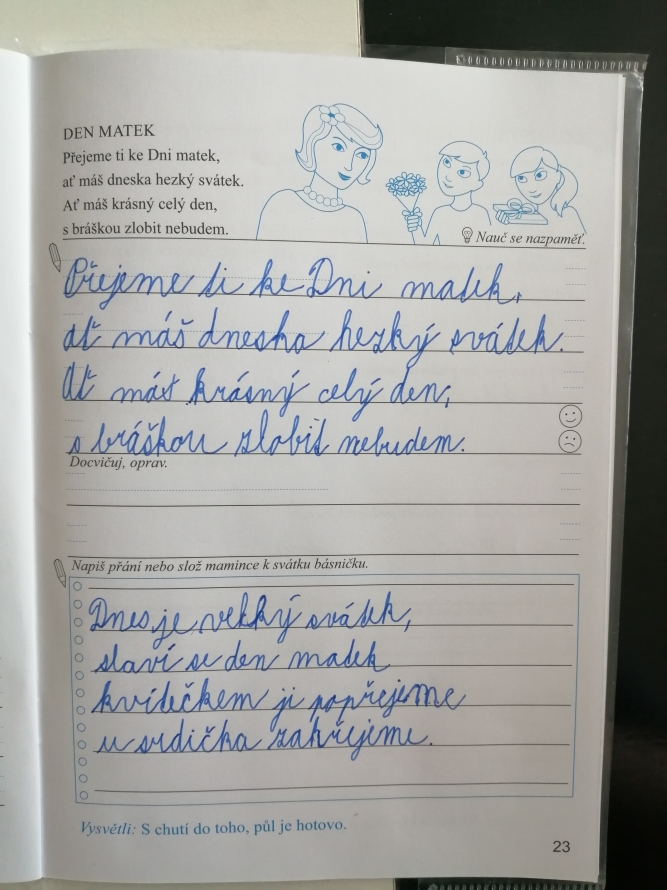 DEN MATEK
Přejeme ti ke Dni matek,
ať máš dneska hezký svátek.
Ať máš krásný celý den,
s bráškou zlobit nebudem.
Nauč se nazpaměť.
Přejeme ti ke Dni matek,
ať máš dneska hezký svátek.
Ať máš krásný celý den,
s bráškou zlobit nebudem.
Docvičuj, oprav.
Napiš přání nebo slož mamince k svátku básničku.
Dnes je velký svátek,
slaví se den matek
kvítečkem ji popřejeme
u srdíčka zahřejeme.
Vysvětli: S chutí do toho, půl je hotovo.
23